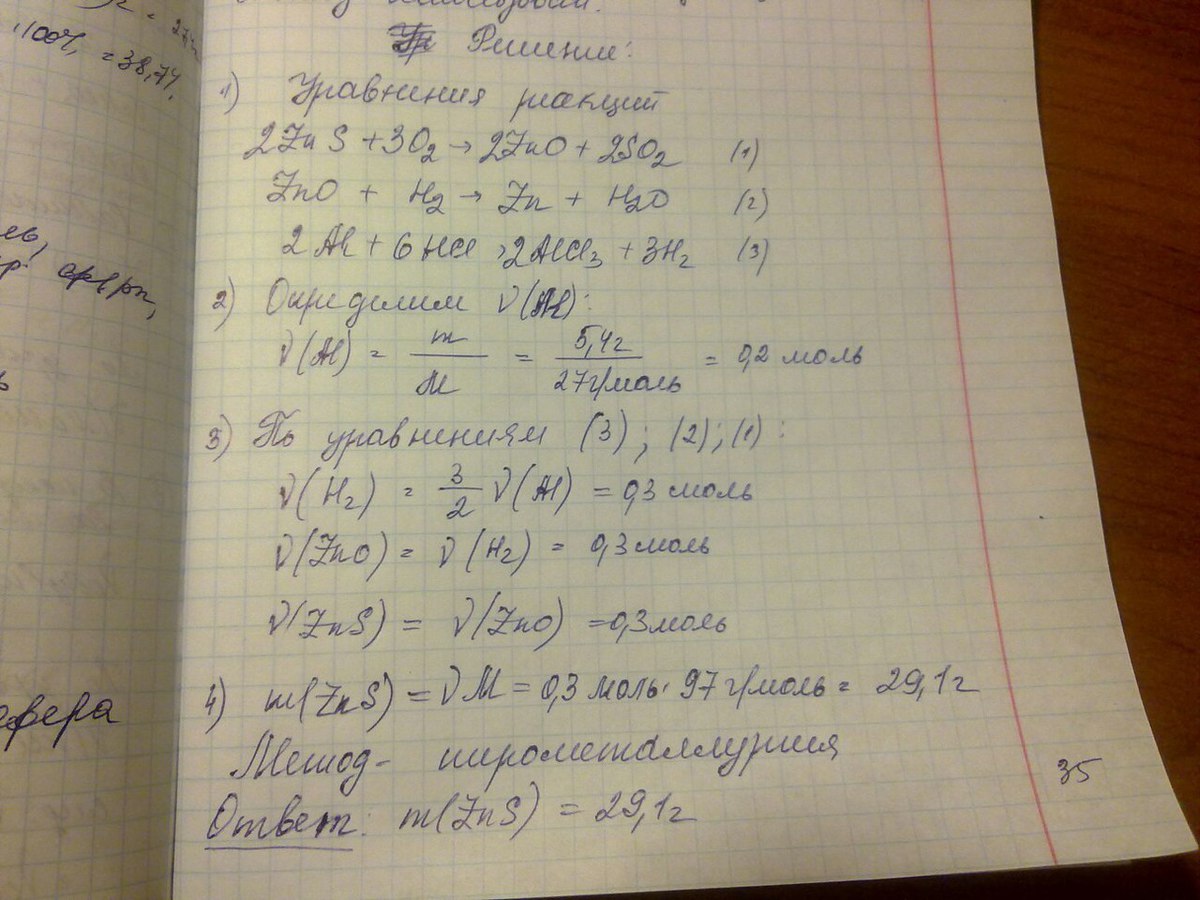 100% = 38,7%.
Решение:
1) Уравнения реакций
2ZnS + 3O₂ → 2ZnO + 2SO₂ (1)
ZnO + H₂ → Zn + H₂O (2)
2Al + 6HCl → 2AlCl₃ + 3H₂ (3)
2) Определим ν(Al):
ν(Al) = m/M = 5,4г/27г/моль = 0,2 моль
3) По уравнениям (3); (2); (1):
ν(H₂) = 3/2 ν(Al) = 0,3 моль
ν(ZnO) = ν(H₂) = 0,3 моль
ν(ZnS) = ν(ZnO) = 0,3 моль
4) m(ZnS) = νM = 0,3 моль · 97 г/моль = 29,1 г
Метод - пирометаллургия
Ответ: m(ZnS) = 29,1 г
35